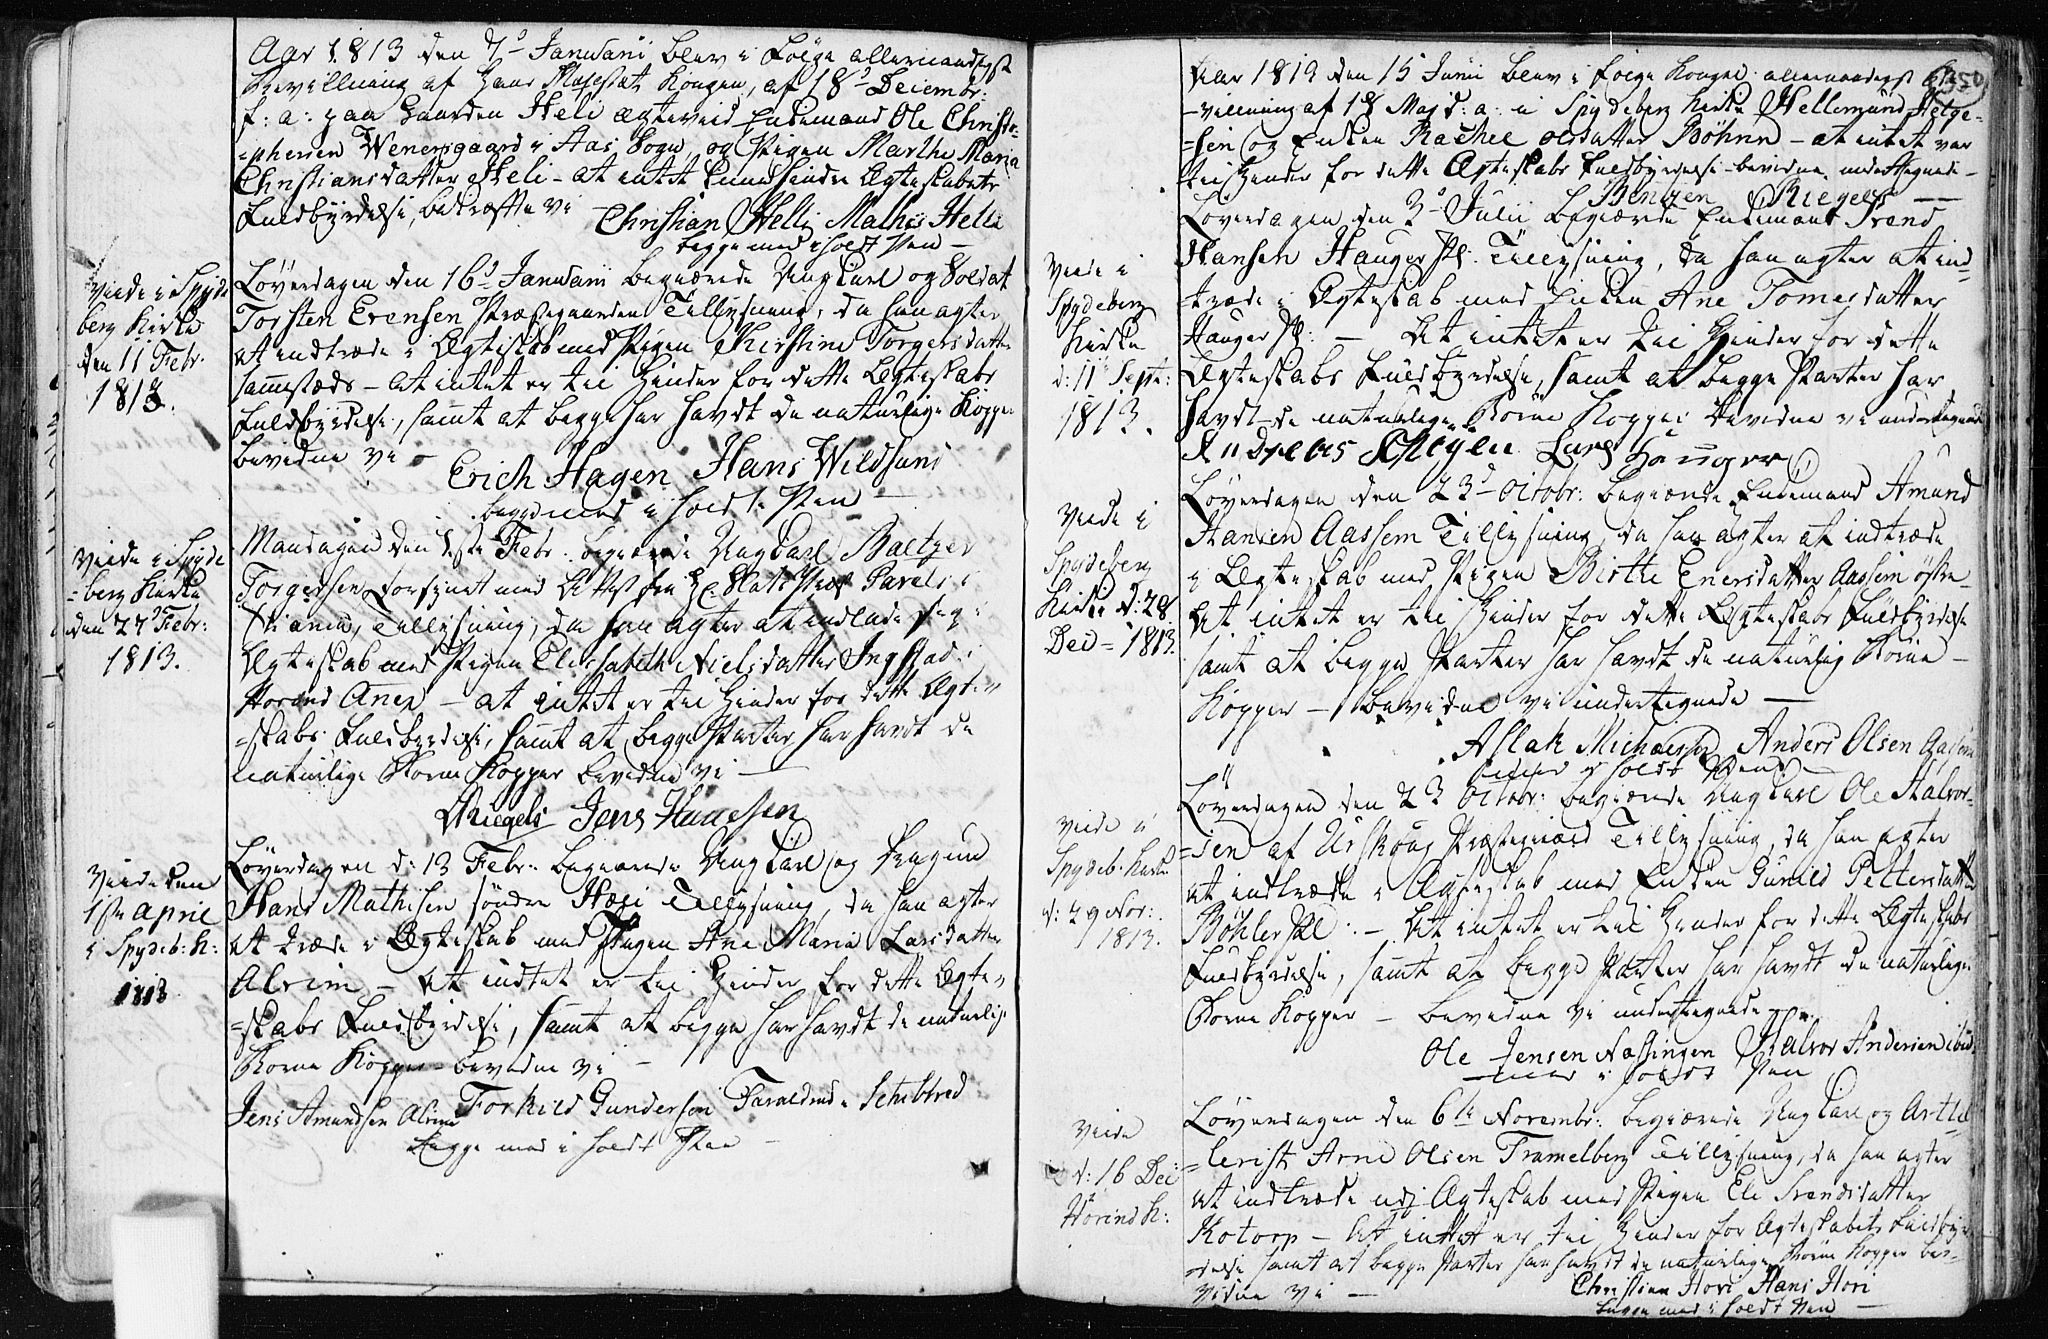 Aar 1813 den 7de Januarii blev i Følge allernaadigst
Bevillning af Hans Majestæt Kongen, af 18de Decembr:
f: a: paa Gaarden Heli ægteviid Enkemand Ole Christo-
=phersen Wenersgaard i Aas Sogn, og Pigen Marthe Maria
Christiansdatter Heli - at intet kund hindre Ægteskabets
Fuldbyrdelse, bekræfte vi Christian Helli Mathis Helli
begge med i holdt Pen -
Viede i Spyde
berg Kirke
den 11 Febr.
1813.
Løverdagen den 16de Januarii begiærede Ung Karl og Soldat
Torsten Evensen Præstegaarden Tillysning, da han agter
at indtræde i Ægteskab med Pigen Kirstine Torgersdatter
sammesteds - at intet er til Hinder for dette Ægteskabs
Fuldbyrdelse, samt at begge har havdt de naturlige Kopper
bevidne vi - Erich Hagen Hans Wildsund
begge med i holdt Pen -
Viede i Spyde
=berg Kirke
den 27 Febr:
1813.
Mandagen den 1ste Febr. begiærede Ung Karl Baltzer
Torgersen forsynet med Attest fra Hr. Slots Præst Pavels i
Christiania, Tillysning, da han agter at indlade sig i
Ægteskab med Pigen Elissabeth Nielsdatter Ingstad i
Hovind Anex - at intet er til Hinder for dette Ægte-
=skabs Fuldbyrdelse, samt at begge Parter har havdt de
naturlige Børne Kopper bevidne vi -
Riegels Jens Haaesen
Viede den
1ste April
i Spydeb: K:
1813
Løverdagen d: 13 Febr: begiærede Ung Karl og Dragun
Hans Mathisen søndre Hæsi Tillysning, da han agter
at træde i Ægteskab med Pigen Ane Maria Larsdatter
Alvim - At indtet er til Hinder for dette Ægte-
=skabs Fuldbyrdelse, samt at begge har havdt de naturlige
Børne Kopper - bevidne vi -
Jens Amundsen Alvim Torkild Gunderson Taraldrud i Schibtved
begge med i holdt Pen -
350
Aar 1813 den 15 Junii blev i Følge Kongel: allernaadigst Be
-villning af 18 Maj d: a: i Spydeberg Kirke Hellemund Helge-
=sen og Enken Rachel Olsdatter Bøhnn - at intet var
til Hinder for dette Ægteskabs Fuldbyrdelse - bevidne undertegnede -
Bentzen Riegels -
Viede i
Spydeberg
Kirke
d: 11 Septr:
1813.
Løverdagen den 3de Julii begiærede Enkemand Svend
Hansen Hauger Pl: Tillysning, da han agter at ind-
-træde i Ægteskab med Enken Ane Tomesdatter
Hauger Pl: - At intet er til Hinder for dette
Ægteskabs Fuldbyrdelse, samt at begge Parter har
havdt de naturlige Børne Kopper bevidne vi undertegnede
Andreas Schøyen Lars Hauger
Viede i
Spydeberg
Kirke d: 28
Dec = 1813.
Løverdagen den 23de Octobr: begiærede Enkemand Amund
Hansen Aassem Tillysning, da han agter at indtræde
i Ægteskab med Pigen Birthe Enersdatter Aassem østre -
At intet er til Hinder for dette Ægteskabs Fuldbyrdelse
samt at begge Parter har havdt de naturlig Børne -
Kopper - bevidne vi undertegnede -
Aslak Michaelsen Anders Olsen Aassem
begge i holdt Pen -
Viede i
Spydeb. Kirke
d: 29 Nov:
1813.
Løverdagen den 23 Octobr: begiærede Ung Karl Ole Halvor-
=sen af Urskoug Præstegield Tillysning, da han agter
at indtræde i Ægteskab med Enken Gunild Pettersdatter
Bøhler Pl: - At intet er til Hinder for dette Ægteskabs
Fuldbyrdelse, samt at begge Parter har havdt de naturlige
Børne Kopper - bevidne vi undertegnede
Ole Jensen Næssingen Halvor Andersen ibid.
med i holdt Pen
Viede
d: 16 Dec
Hovind K:
Løverdagen den 6te Novembr: begiærede Ung Karl og Artil-
=lerist Arne Olsen Tramelberg Tillysning, da han agter
at indtræde udj Ægteskab med Pigen Eli Svendsdatter
Kotorp - At intet er til Hinder for Ægteskabets Fuldbyr-
=delse samt at begge Parter har havdt de naturlige Børne Kopper be-
vidne vi - Christian Hovi Hans Hovi
begge med i holdt Pen -